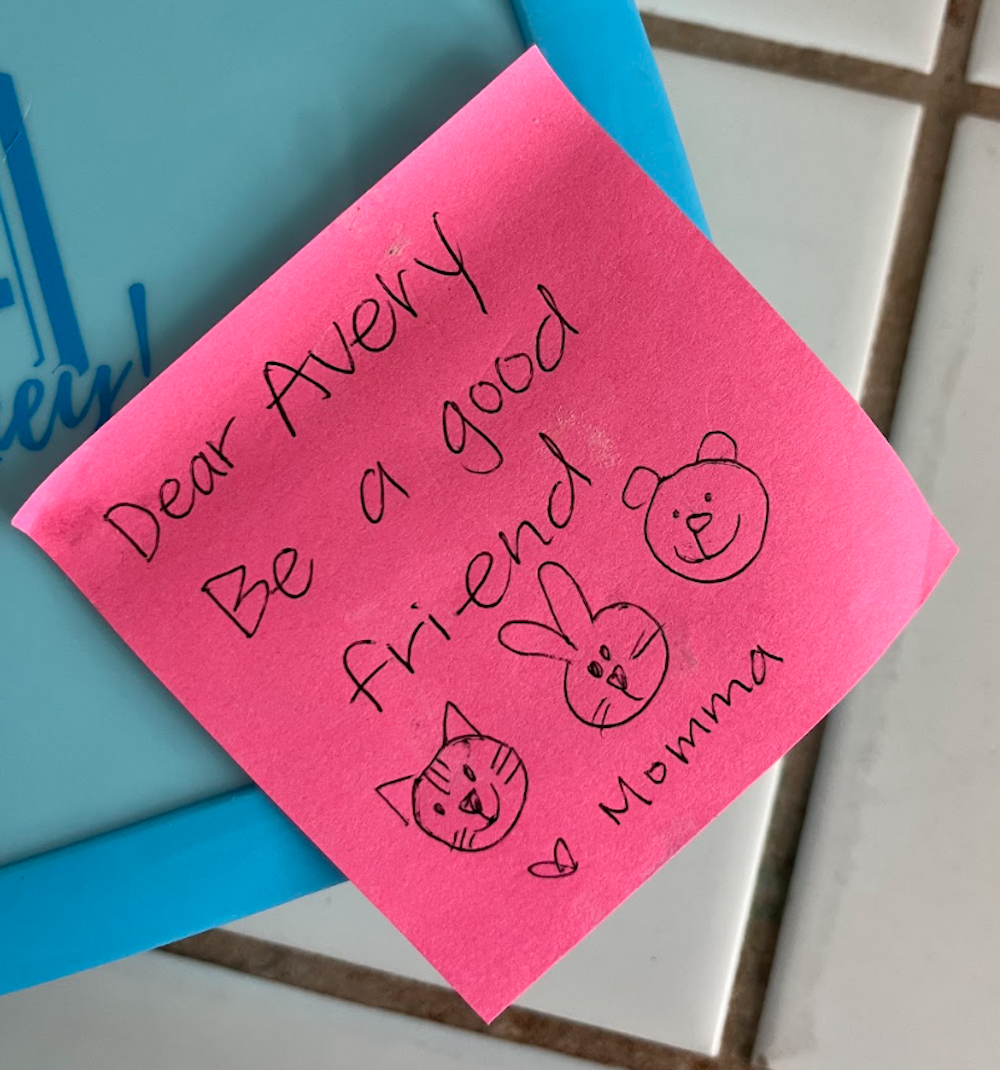 Dear Avery
Be a good
friend
♡ Momma